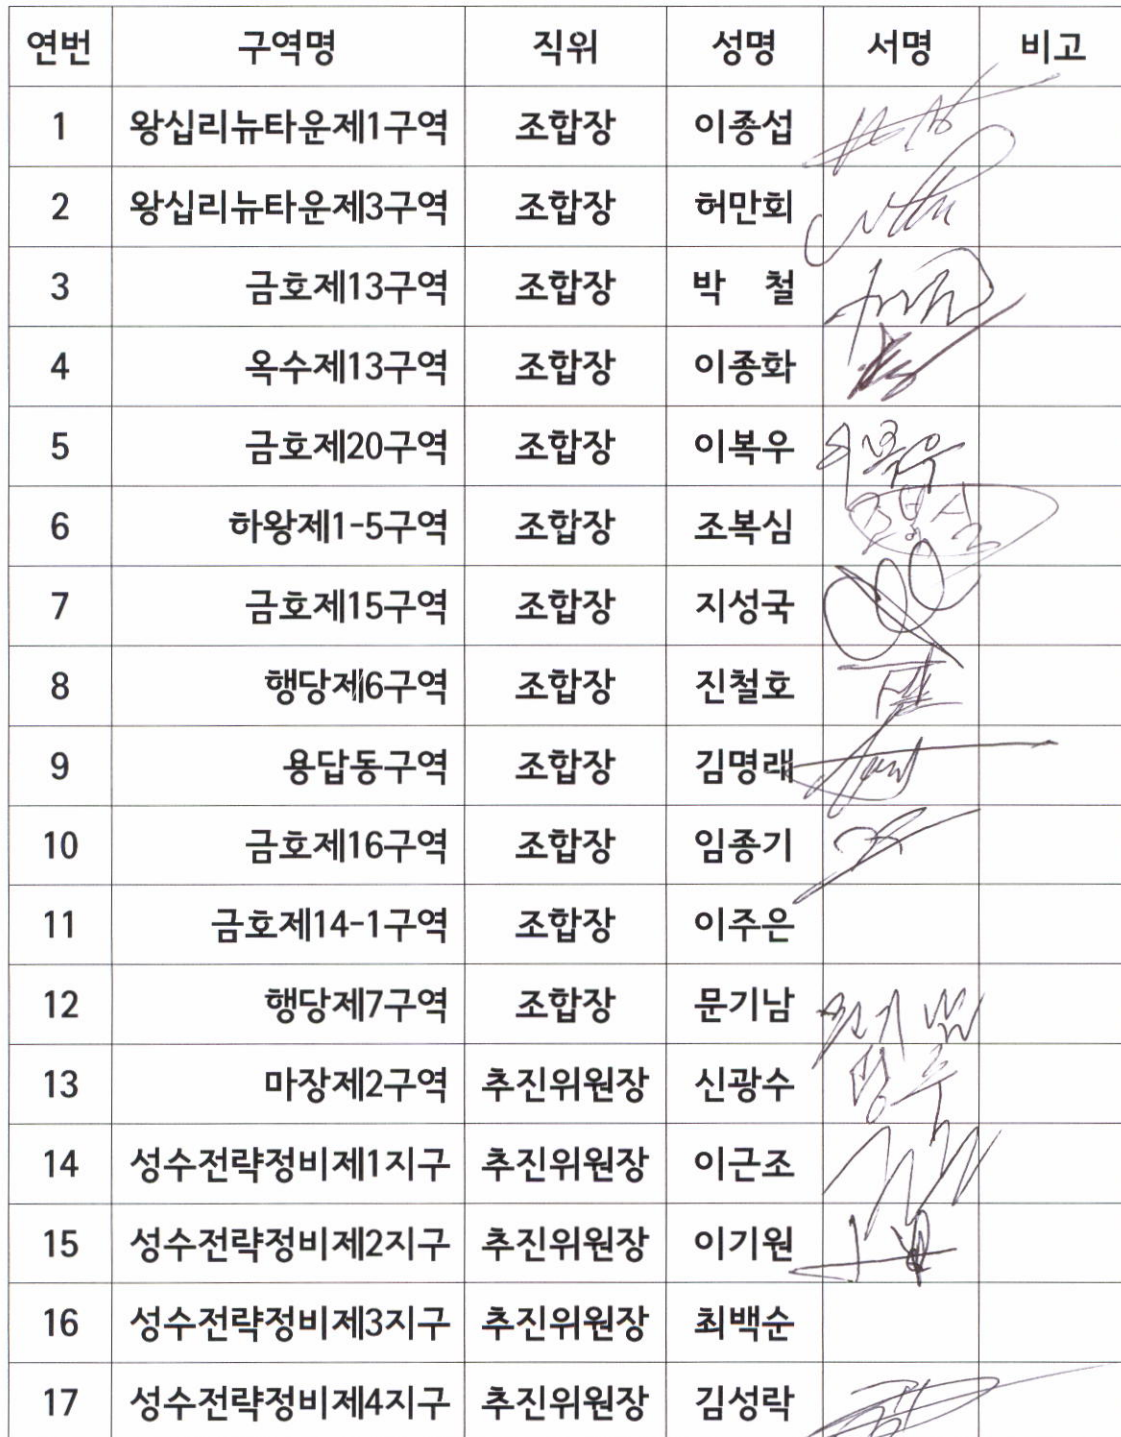 연번 구역명 직위 성명 서명 비고
1 왕십리뉴타운제1구역 조합장 이종섭
2 왕십리뉴타운제3구역 조합장 허만회
3 금호제13구역 조합장 박 철
4 옥수제13구역 조합장 이종화
5 금호제20구역 조합장 이복우 이복우
6 하왕제1-5구역 조합장 조복심 조복심
7 금호제15구역 조합장 지성국
8 행당제6구역 조합장 진철호
9 용답동구역 조합장 김명래
10 금호제16구역 조합장 임종기
11 금호제14-1구역 조합장 이주은
12 행당제7구역 조합장 문기남 문기남
13 마장제2구역 추진위원장 신광수 광수
14 성수전략정비제1지구 추진위원장 이근조
15 성수전략정비제2지구 추진위원장 이기원
16 성수전략정비제3지구 추진위원장 최백순
17 성수전략정비제4지구 추진위원장 김성락